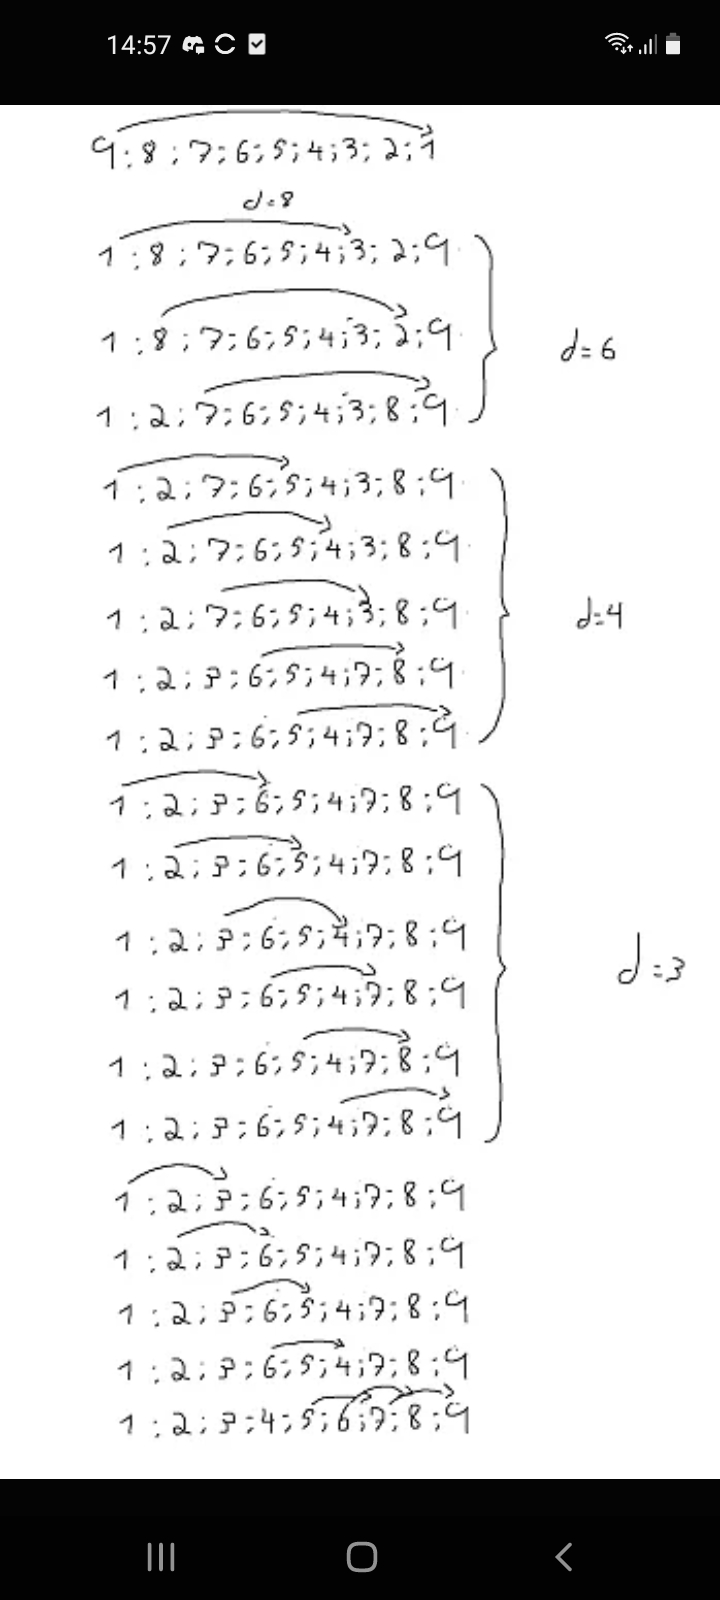 14:57
9:8;7;6;5;4;3;2;1
d=8
1:8;7;6;5;4;3;2;9
1:8;7;6;5;4;3;2;9
d=6
1:2;7;6;5;4;3;8;9
1:2;7;6;5;4;3;8;9
1:2;7;6;5;4;3;8;9
1:2;7;6;5;4;3;8;9
d=4
1:2;3;6;5;4;7;8;9
1:2;3;6;5;4;7;8;9
1:2;3;6;5;4;7;8;9
1:2;3;6;5;4;7;8;9
1:2;3;6;5;4;7;8;9
d=3
1:2;3;6;5;4;7;8;9
1:2;3;6;5;4;7;8;9
1:2;3;6;5;4;7;8;9
1:2;3;6;5;4;7;8;9
1:2;3;6;5;4;7;8;9
1:2;3;6;5;4;7;8;9
1:2;3;6;5;4;7;8;9
1:2;3;4;5;6;7;8;9